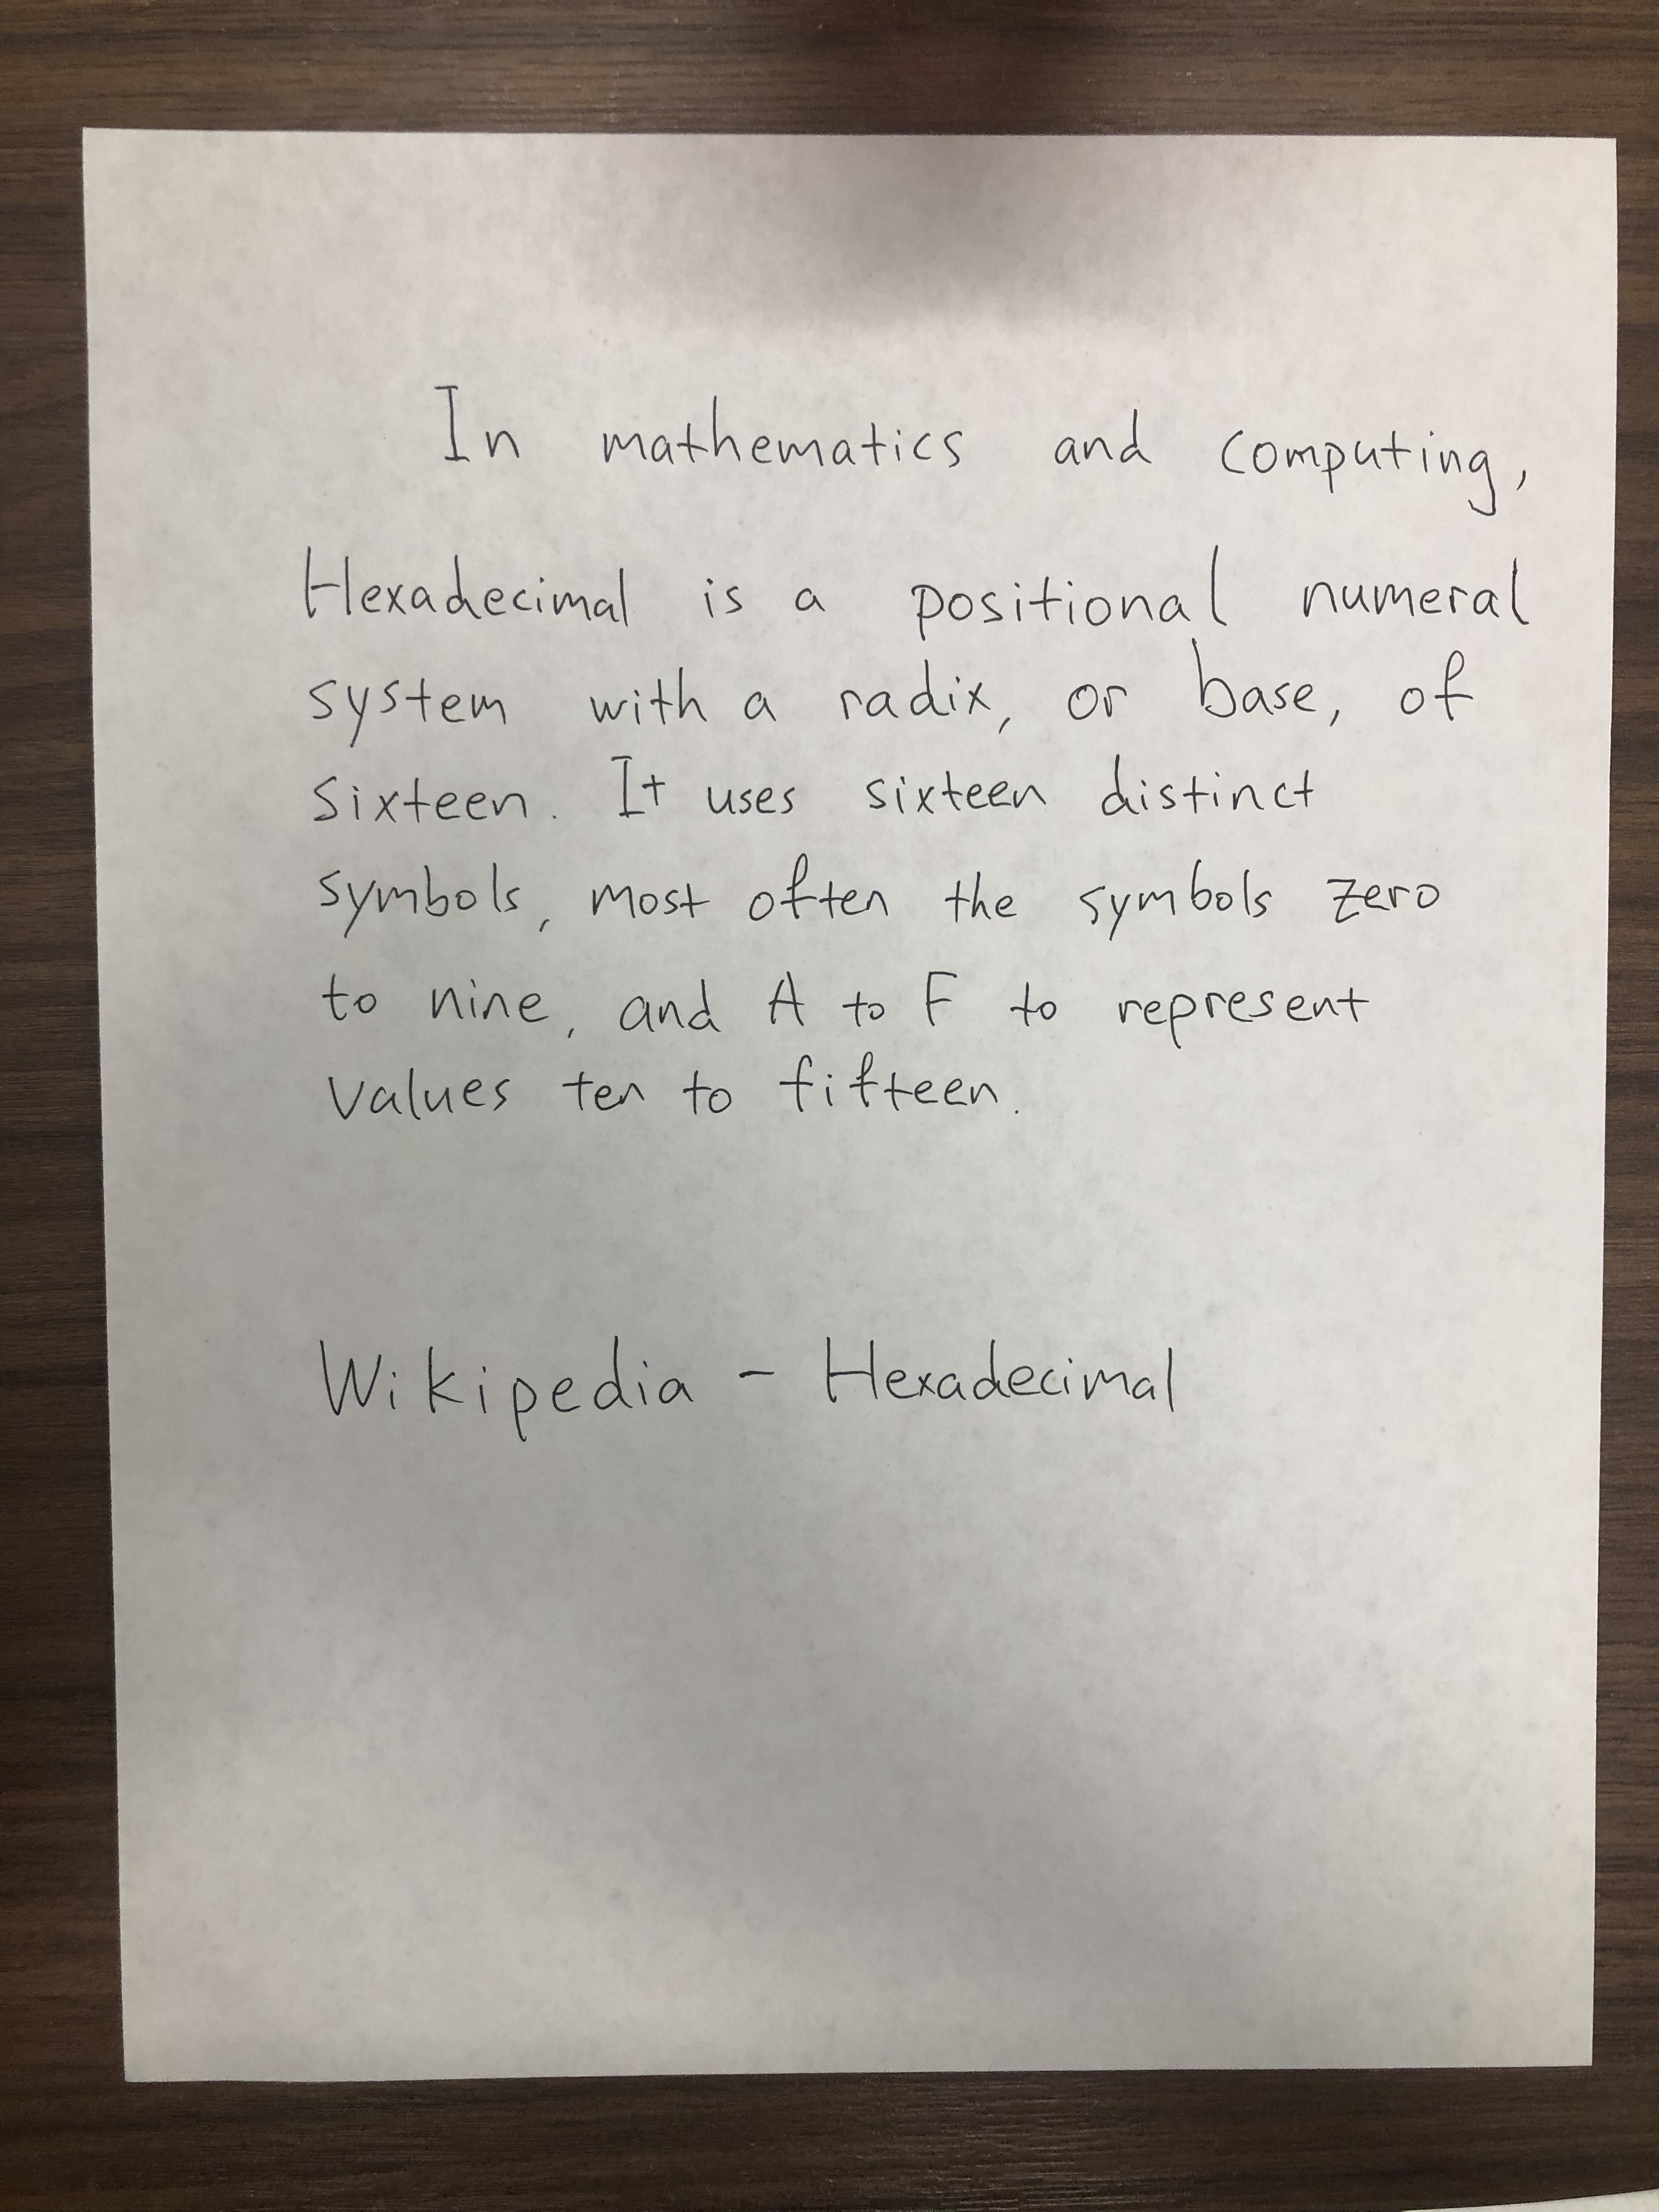 In mathematics and computing,
Hexadecimal is a positional numeral
system with a radix, or base, of
sixteen. It uses sixteen distinct
symbols, most often the symbols zero
to nine, and A to F to represent
values ten to fifteen.
Wikipedia - Hexadecimal